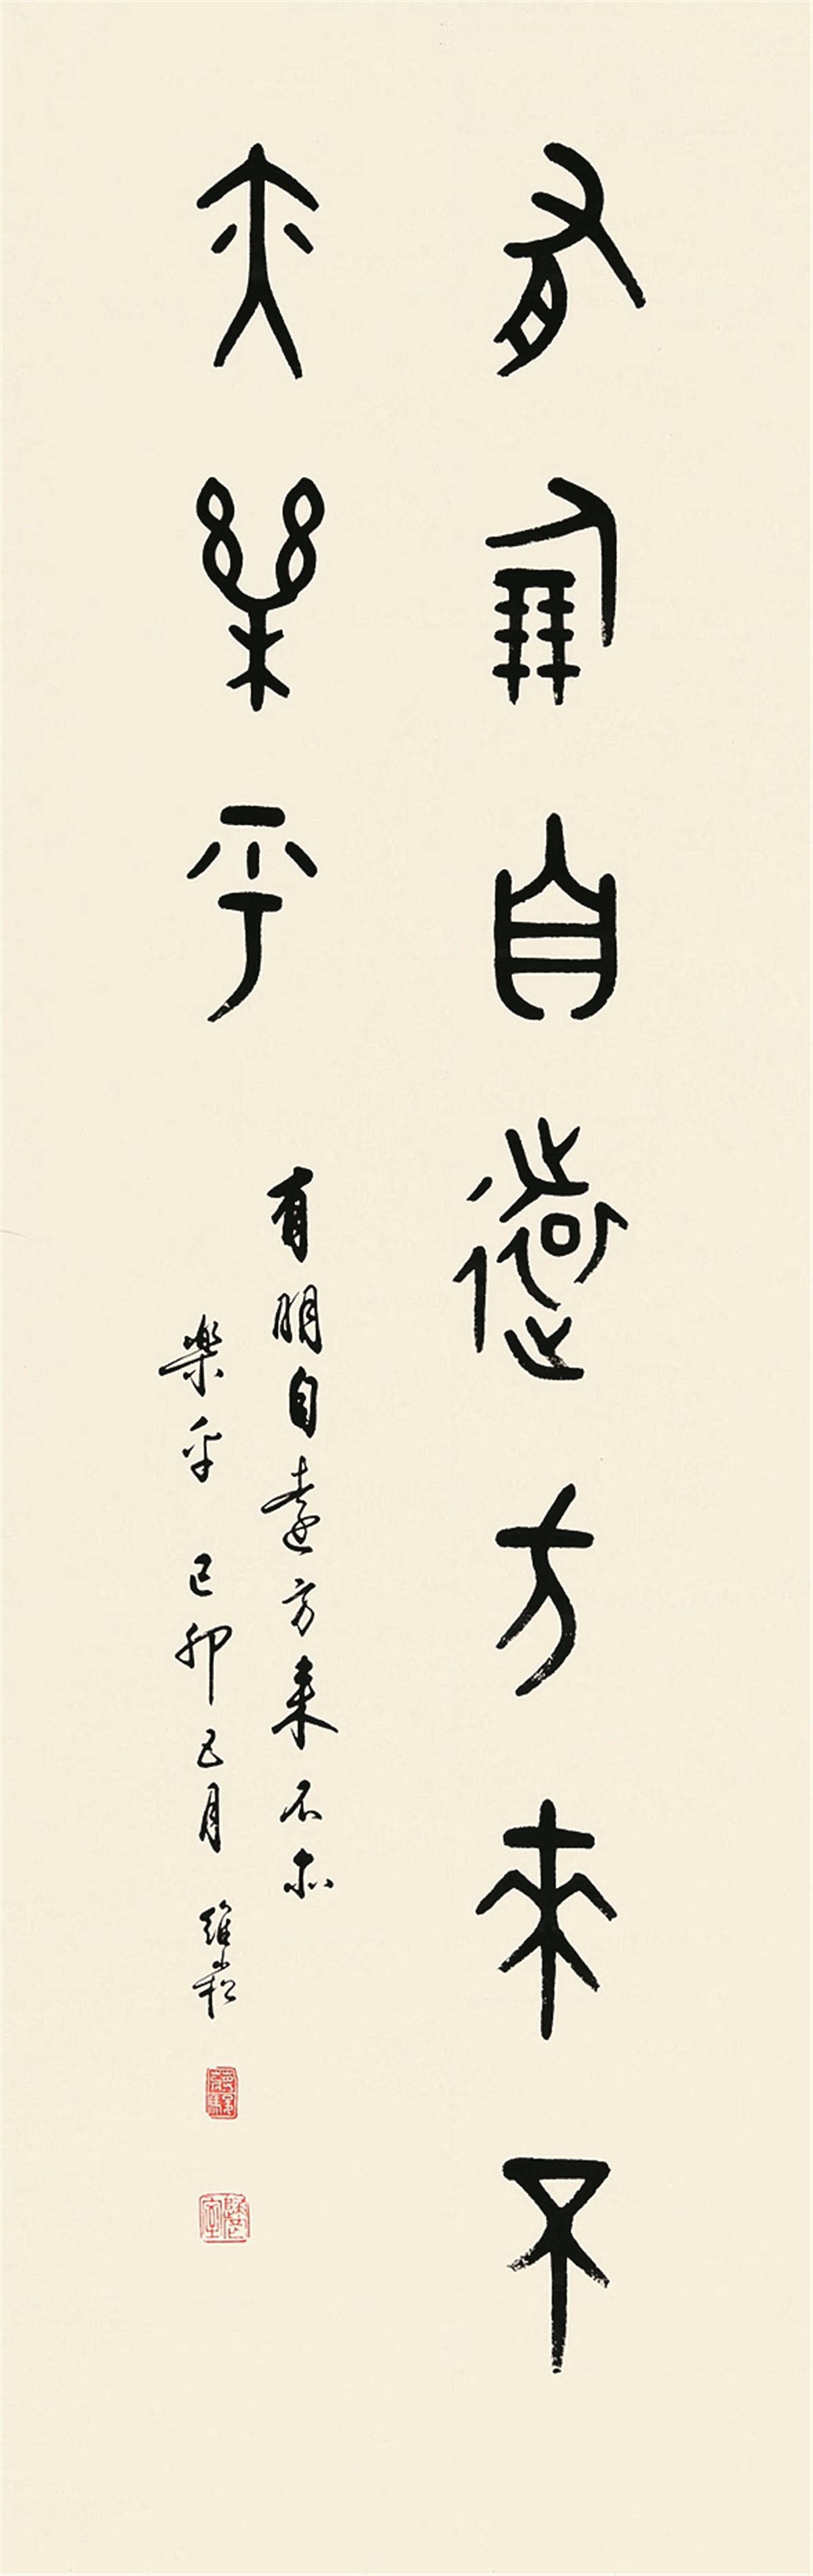 有朋自遠方來不
亦樂乎
有朋自遠方來不亦
樂乎 己卯五月 維崧